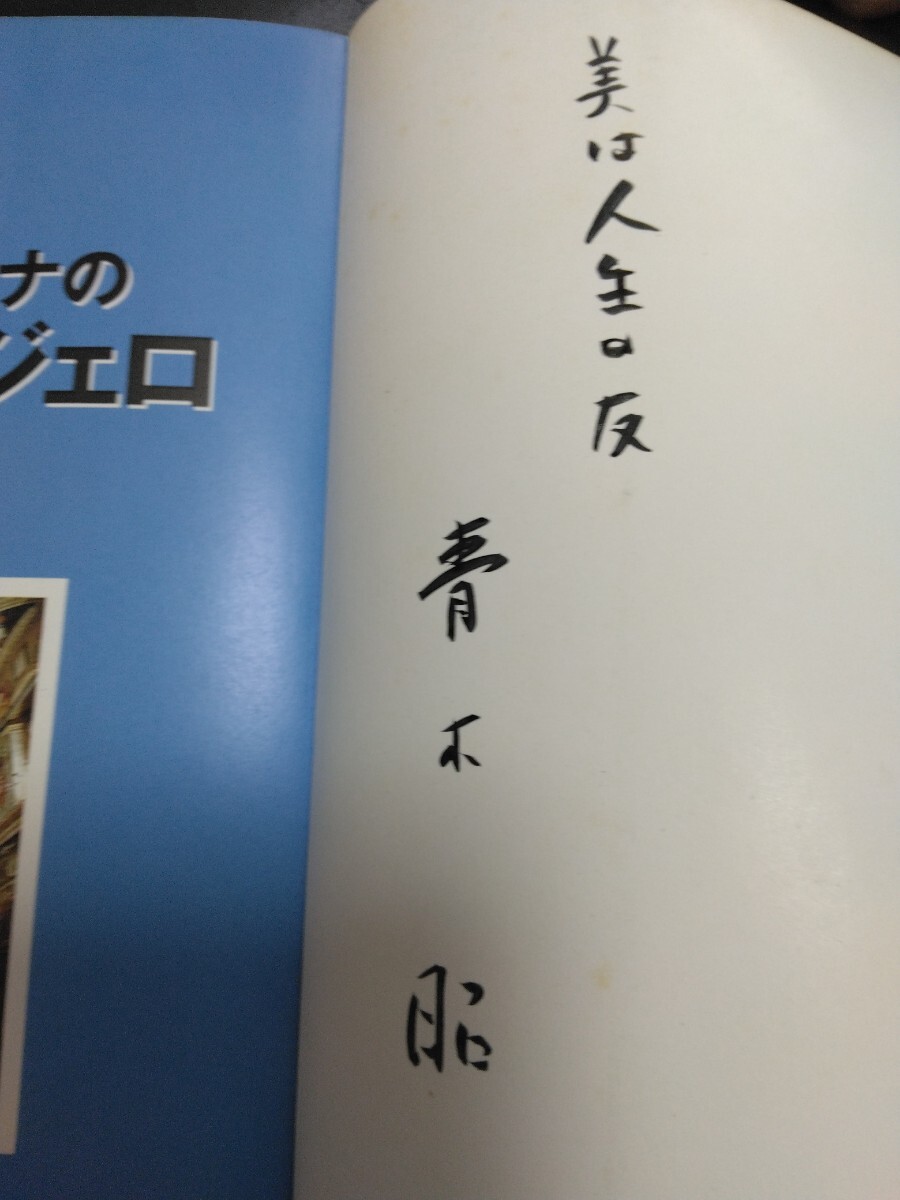 美は人生の友
青木昭
ナの
ジェロ